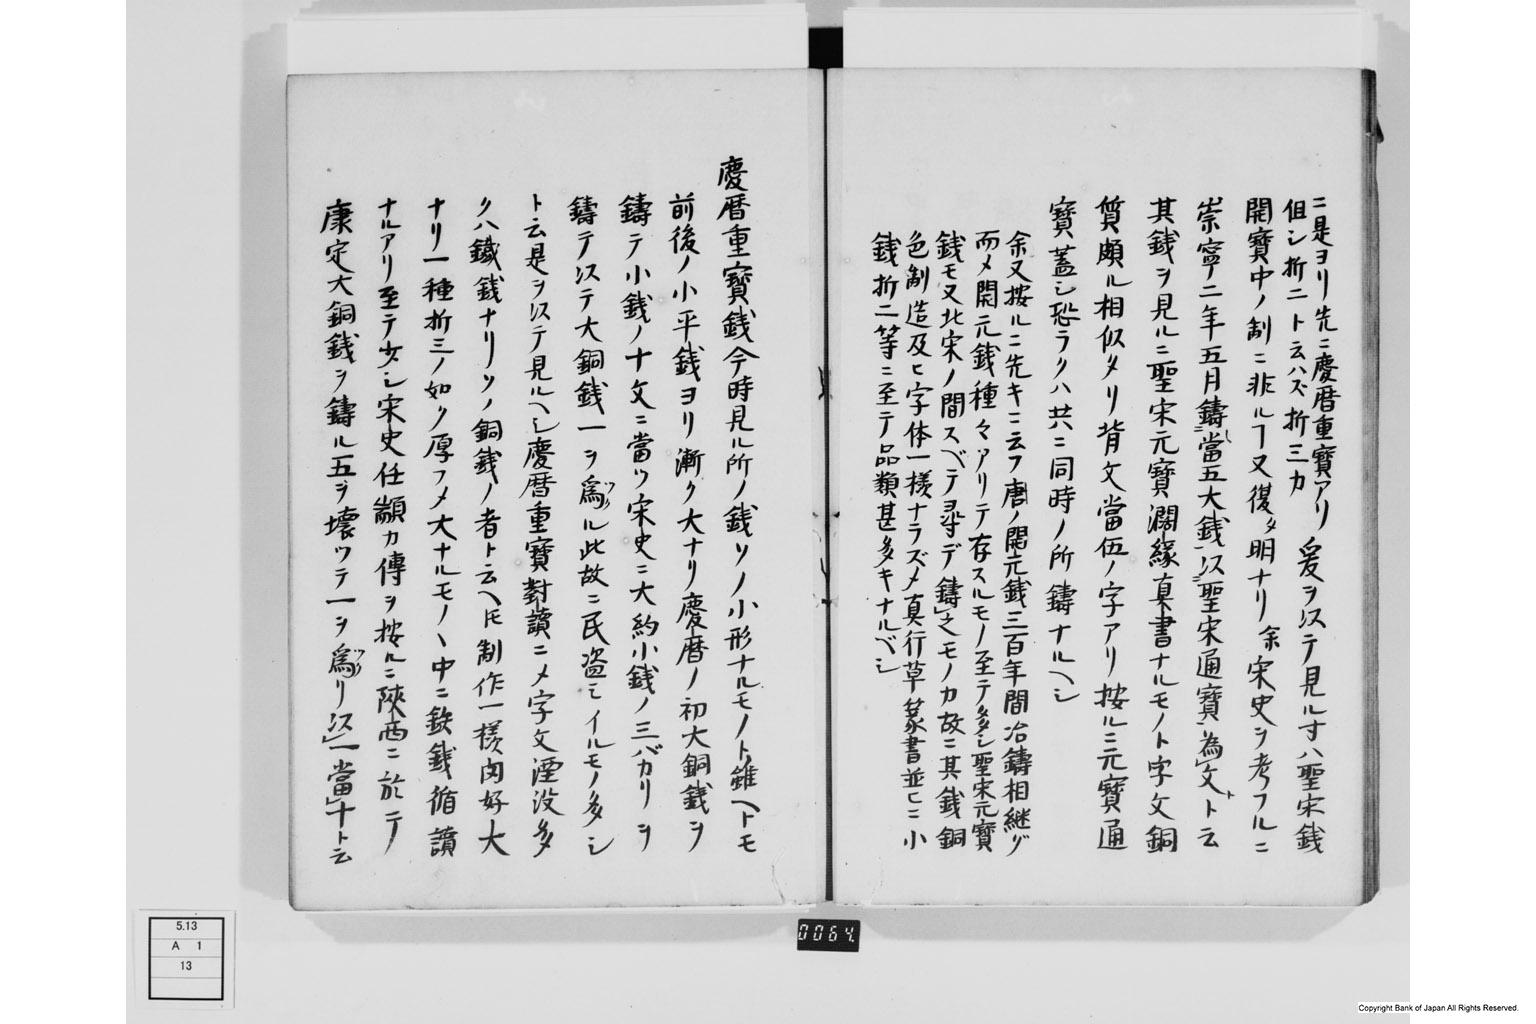 ニ是ヨリ先ニ慶暦重寶アリ 爰ヲ以テ見ル寸ハ聖宋銭
但シ折二ト云ハズ折三カ
開寶中ノ制ニ非ルヿ又復タ明ナリ余宋史ヲ考フルニ
崇寧二年五月鑄當五大銭以聖宋通寶為文ト云
其銭ヲ見ルニ聖宋元寶濶縁真書ナルモノト字文銅
質頗ル相似タリ背文當伍ノ字アリ按ルニ元寶通
寶蓋シ恐ラクハ共ニ同時ノ所鑄ナルヘシ
余又按ルニ先キニ云フ唐ノ開元銭三百年間冶鑄相継グ
而メ開元銭種々アリテ存スルモノ至テ多シ聖宋元寶
銭モ又北宋ノ間スベテ尋デ鑄之モノカ故ニ其銭銅
色制造及ヒ字体一様ナラズメ真行草篆書並ヒニ小
銭折二等ニ至テ品類甚多キナルベシ
慶暦重寶銭今時見ル所ノ銭ソノ小形ナルモノト雖ヘトモ
前後ノ小平銭ヨリ漸ク大ナリ慶暦ノ初大銅銭ヲ
鑄テ小銭ノ十文ニ當ツ宋史ニ大約小銭ノ三バカリヲ
鑄テ以テ大銅銭一ヲ爲ル此故ニ民盗ミイルモノ多シ
ト云是ヲ以テ見ルヘシ慶暦重寶對讀ニメ字文湮没多
クハ鐵銭ナリソノ銅銭ノ者ト云ヘ𪜈制作一様肉好大
ナリ一種折三ノ如ク厚フメ大ナルモノヽ中ニ鉄銭循讀
ナルアリ至テ少シ宋史任顓カ傳ヲ按ルニ陝西ニ於テ
康定大銅銭ヲ鑄ル五ヲ壊ツテ一ヲ爲リ以一當十ト云
5.13
A 1
13
0064.
Copyright Bank of Japan All Rights Reserved.